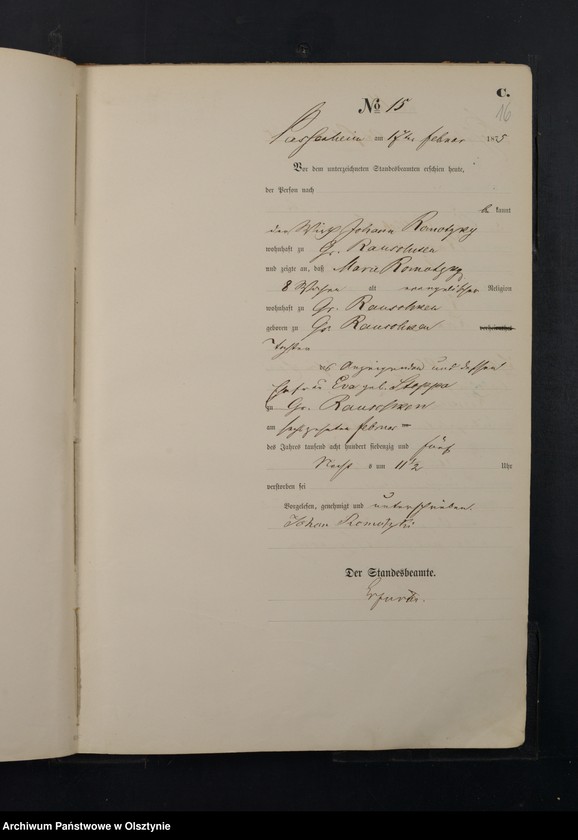 C.
16
No 15
Passenheim am 17ten Februar 1875
Vor dem unterzeichneten Standesbeamten erschien heute,
der Person nach
be kannt
der Wirth Johann Romotzky
wohnhaft zu Gr. Rauschken
und zeigte an, daß Marie Romotzky
8 Wochen alt evangelischer Religion
wohnhaft zu Gr. Rauschken
geboren zu Gr. Rauschken
Tochter
des Anzeigenden und dessen
Ehefrau Eva geb. Stoppa
zu Gr. Rauschken
am sechszehnten Februar
des Jahres tausend acht hundert siebenzig und fünf
Nachts um 11 1/2 Uhr
verstorben sei
Vorgelesen, genehmigt und unterschrieben
Johan Romotzki
Der Standesbeamte.
Archiwum Państwowe w Olsztynie